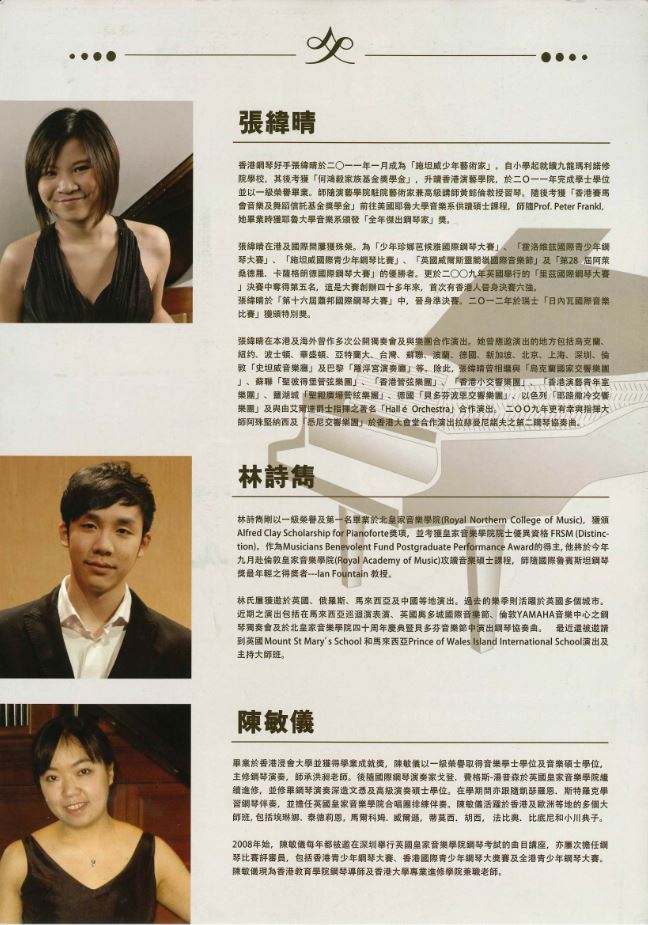 張緯晴
香港鋼琴好手張緯晴於二〇一一年一月成為「施坦威少年藝術家」。自小學起就讀九龍瑪利諾修
院學校，其後考獲「何鴻毅家族基金獎學金」，升讀香港演藝學院，於二〇一一年完成學士學位
並以一級榮譽畢業。師隨演藝學院駐院藝術家兼高級講師黃懿倫教授習琴。隨後考獲「香港賽馬
會音樂及舞蹈信託基金獎學金」前往美國耶魯大學音樂系供讀碩士課程，師隨Prof. Peter Frankl，
她畢業時獲耶魯大學音樂系頒發「全年傑出鋼琴家」獎。
張緯晴在港及國際間屢獲殊榮。為「少年珍娜芭候雅國際鋼琴大賽」、「霍洛維茲國際青少年鋼
琴大賽」、「施坦威國際青少年鋼琴比賽」、「英國威爾斯靈闊嶺國際音樂節」及「第28 屆阿萊
桑德羅．卡薩格朗德國際鋼琴大賽」的優勝者。更於二〇〇九年英國舉行的「里茲國際鋼琴大賽
」決賽中奪得第五名，這是大賽創辦四十多年來，首次有香港人晉身決賽六強。
張緯晴於「第十六屆蕭邦國際鋼琴大賽」中，晉身準決賽。二〇一二年於瑞士「日內瓦國際音樂
比賽」獲頒特別獎。
張緯晴在本港及海外曾作多次公開獨奏會及與樂團合作演出。她曾應邀演出的地方包括烏克蘭、
紐約、波士頓、華盛頓、亞特蘭大、台灣、蘇聯、波蘭、德國、新加坡、北京、上海、深圳、倫
敦「史坦威音樂廳」及巴黎「羅浮宮演奏廳」等。除此，張緯晴曾相繼與「烏克蘭國家交響樂團
」、蘇聯「聖彼得堡管弦樂團」、「香港管弦樂團」、「香港小交響樂團」、「香港演藝青年室
樂團」、鹽湖城「聖殿廣場管絃樂團」、德國「貝多芬波恩交響樂團」、以色列「耶路撒冷交響
樂團」及與由艾爾達爵士指揮之著名「Hallé Orchestra」合作演出。二〇〇九年更有幸與指揮大
師阿殊堅納西及「悉尼交響樂團」於香港大會堂合作演出拉赫曼尼諾夫之第二鋼琴協奏曲。
林詩雋
林詩雋剛以一級榮譽及第一名畢業於北皇家音樂學院(Royal Northern College of Music)，獲頒
Alfred Clay Scholarship for Pianoforte獎項，並考獲皇家音樂學院院士優異資格 FRSM (Distinc-
tion)，作為Musicians Benevolent Fund Postgraduate Performance Award的得主，他將於今年
九月赴倫敦皇家音樂學院(Royal Academy of Music)攻讀音樂碩士課程，師隨國際魯賓斯坦鋼琴
獎最年輕之得獎者---Ian Fountain 教授。
林氏屢獲邀於英國、俄羅斯、馬來西亞及中國等地演出。過去的樂季則活躍於英國多個城市。
近期之演出包括在馬來西亞巡迴演表演、英國奧多城國際音樂節、倫敦YAMAHA音樂中心之鋼
琴獨奏會及於北皇家音樂學院四十周年慶典暨貝多芬音樂節中演出鋼琴協奏曲。 最近還被邀請
到英國Mount St Mary's School 和馬來西亞Prince of Wales Island International School演出及
主持大師班。
陳敏儀
畢業於香港浸會大學並獲得學業成就獎，陳敏儀以一級榮譽取得音樂學士學位及音樂碩士學位，
主修鋼琴演奏，師承洪昶老師。後隨國際鋼琴演奏家戈登．費格斯-湯普森於英國皇家音樂學院繼
續進修，並修畢鋼琴演奏深造文憑及高級演奏碩士學位。在學期間亦跟隨凱瑟羅恩．斯特羅克學
習鋼琴伴奏，並擔任英國皇家音樂學院合唱團排練伴奏。陳敏儀活躍於香港及歐洲等地的多個大
師班，包括埃琳娜．泰德莉恩，馬爾科姆．威爾遜，蒂莫西．胡西，法比奧．比底尼和小川典子。
2008年始，陳敏儀每年都被邀在深圳舉行英國皇家音樂學院鋼琴考試的曲目講座，亦屢次擔任鋼
琴比賽評審員，包括香港青少年鋼琴大賽、香港國際青少年鋼琴大獎賽及全港青少年鋼琴大賽。
陳敏儀現為香港教育學院鋼琴導師及香港大學專業進修學院兼職老師。